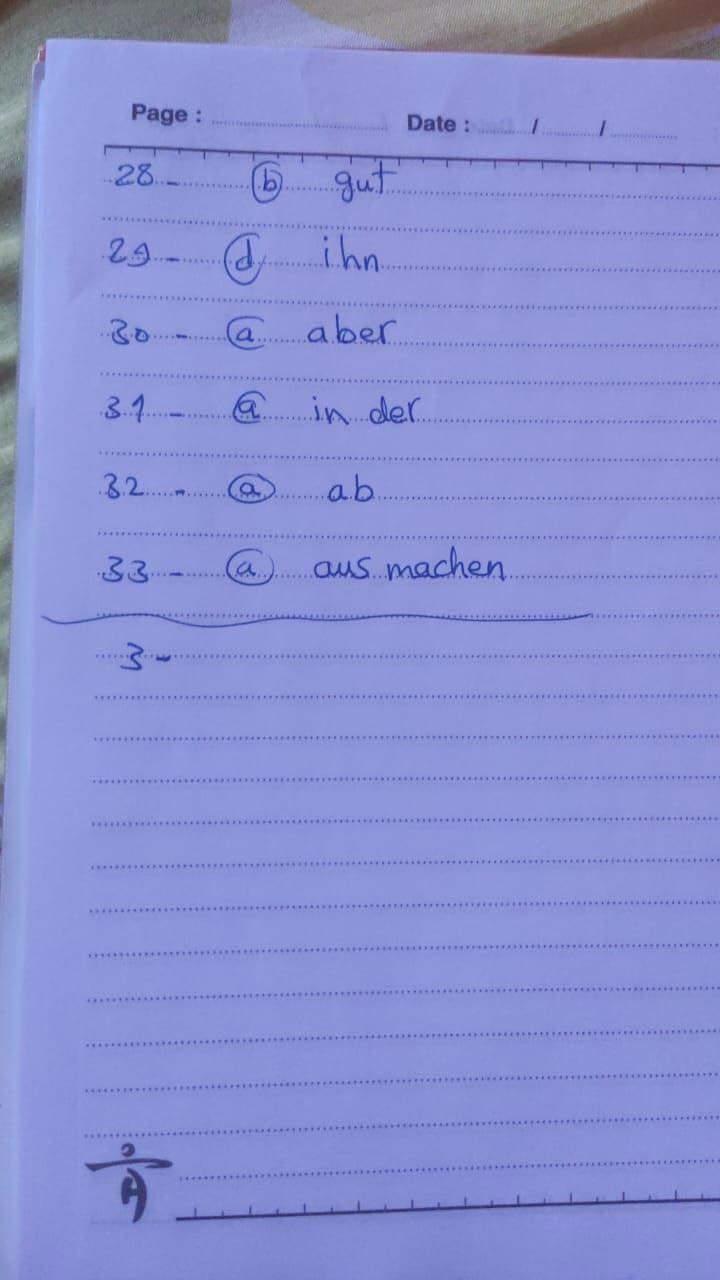 Page : Date : / /
28 - b gut
29 - d ihn
30 - a aber
31 - a in der
32 - a ab
33 - a ausmachen
3 -